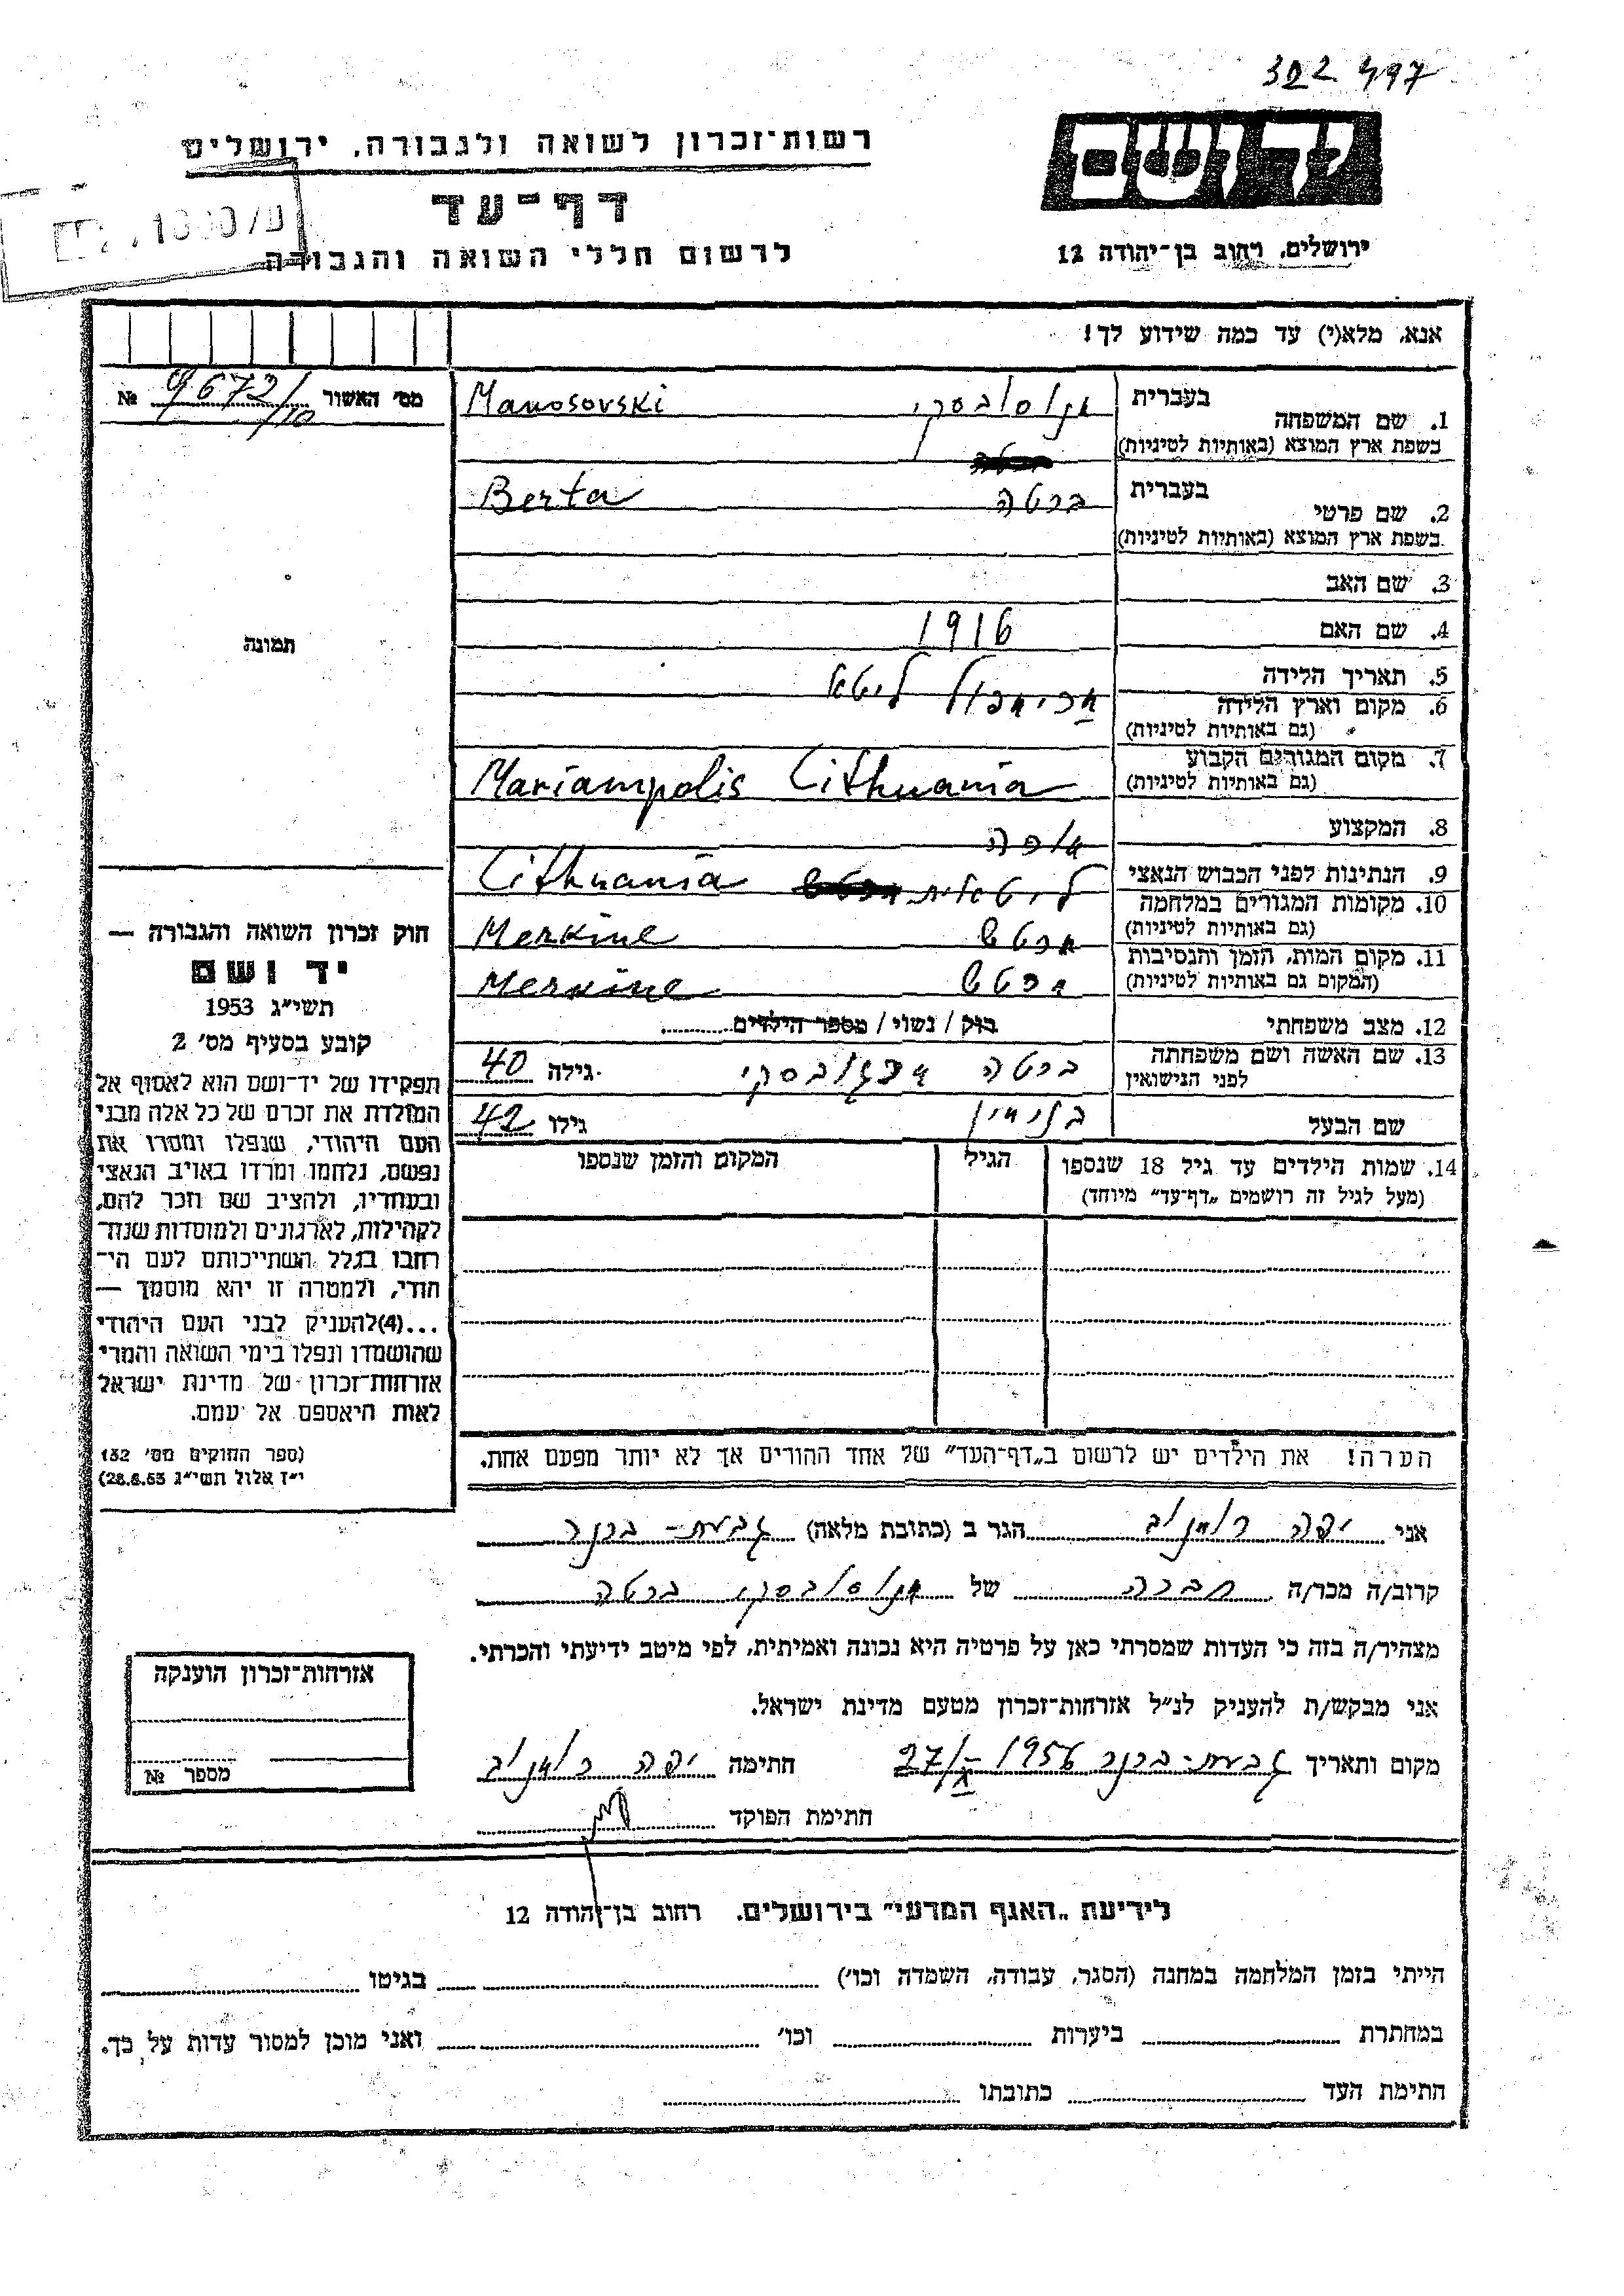 302 497
רשות־זכרון לשואה ולגבורה, ירושלים
יד ושם
דף־עד
לרשום חללי השואה והגבורה
ירושלים, רחוב בן־יהודה 12
אנא, מלא(י) עד כמה שידוע לך!
מס׳ האשור 9672/10 №
1. שם המשפחה
בעברית מנוסובסקי Manosovski
בשפת ארץ המוצא (באותיות לטיניות)
בעברית ברטה Berta
2. שם פרטי
בשפת ארץ המוצא (באותיות לטיניות)
3. שם האב
4. שם האם 1916
5. תאריך הלידה
6. מקום וארץ הלידה מרימפול ליטא
(גם באותיות לטיניות)
7. מקום המגורים הקבוע
(גם באותיות לטיניות) Mariampolis Lithuania
8. המקצוע מורה
9. הנתינות לפני הכבוש הנאצי ליטאית Lithuania
10. מקומות המגורים במלחמה
(גם באותיות לטיניות) Merkine
11. מקום המות, הזמן והנסיבות
(המקום גם באותיות לטיניות) Merkine
12. מצב משפחתי רוק / נשוי / מספר הילדים
13. שם האשה ושם משפחתה
לפני הנישואין ברטה גילה 40
שם הבעל בנימין גילו 42
14. שמות הילדים עד גיל 18 שנספו הגיל המקום והזמן שנספו
(מעל לגיל זה רושמים „דף־עד״ מיוחד)
הערה! את הילדים יש לרשום ב„דף־העד״ של אחד ההורים אך לא יותר מפעם אחת.
תמונה
חוק זכרון השואה והגבורה —
יד ושם
תשי״ג 1953
קובע בסעיף מס׳ 2
תפקידו של יד־ושם הוא לאסוף אל
המולדת את זכרם של כל אלה מבני
העם היהודי, שנפלו ומסרו את
נפשם, נלחמו ומרדו באויב הנאצי
ובעוזריו, ולהציב שם וזכר להם,
לקהילות, לארגונים ולמוסדות שנח־
רחבו בגלל השתייכותם לעם הי־
הודי, ולמטרה זו יהא מוסמך —
...(4)להעניק לבני העם היהודי
שהושמדו ונפלו בימי השואה והמרי
אזרחות־זכרון של מדינת ישראל
לאות היאספם אל עמם.
(ספר החוקים מס׳ 132
י״ז אלול תשי״ג 28.8.53)
אני יפה הגר ב (כתובת מלאה) גבעת־ברנר
קרוב/ה מכר/ה חברה של מנוסובסקי ברטה
מצהיר/ה בזה כי העדות שמסרתי כאן על פרטיה היא נכונה ואמיתית, לפי מיטב ידיעתי והכרתי.
אני מבקש/ת להעניק לנ״ל אזרחות־זכרון מטעם מדינת ישראל.
מקום ותאריך גבעת־ברנר 1956 חתימה יפה
חתימת הפוקד
אזרחות־זכרון הוענקה
מספר №
לידיעת „האגף המדעי״ בירושלים. רחוב בן־יהודה 12
הייתי בזמן המלחמה במחנה (הסגר, עבודה, השמדה וכו׳) בגיטו
במחתרת ביערות וכו׳ ואני מוכן למסור עדות על כך.
חתימת העד כתובתו